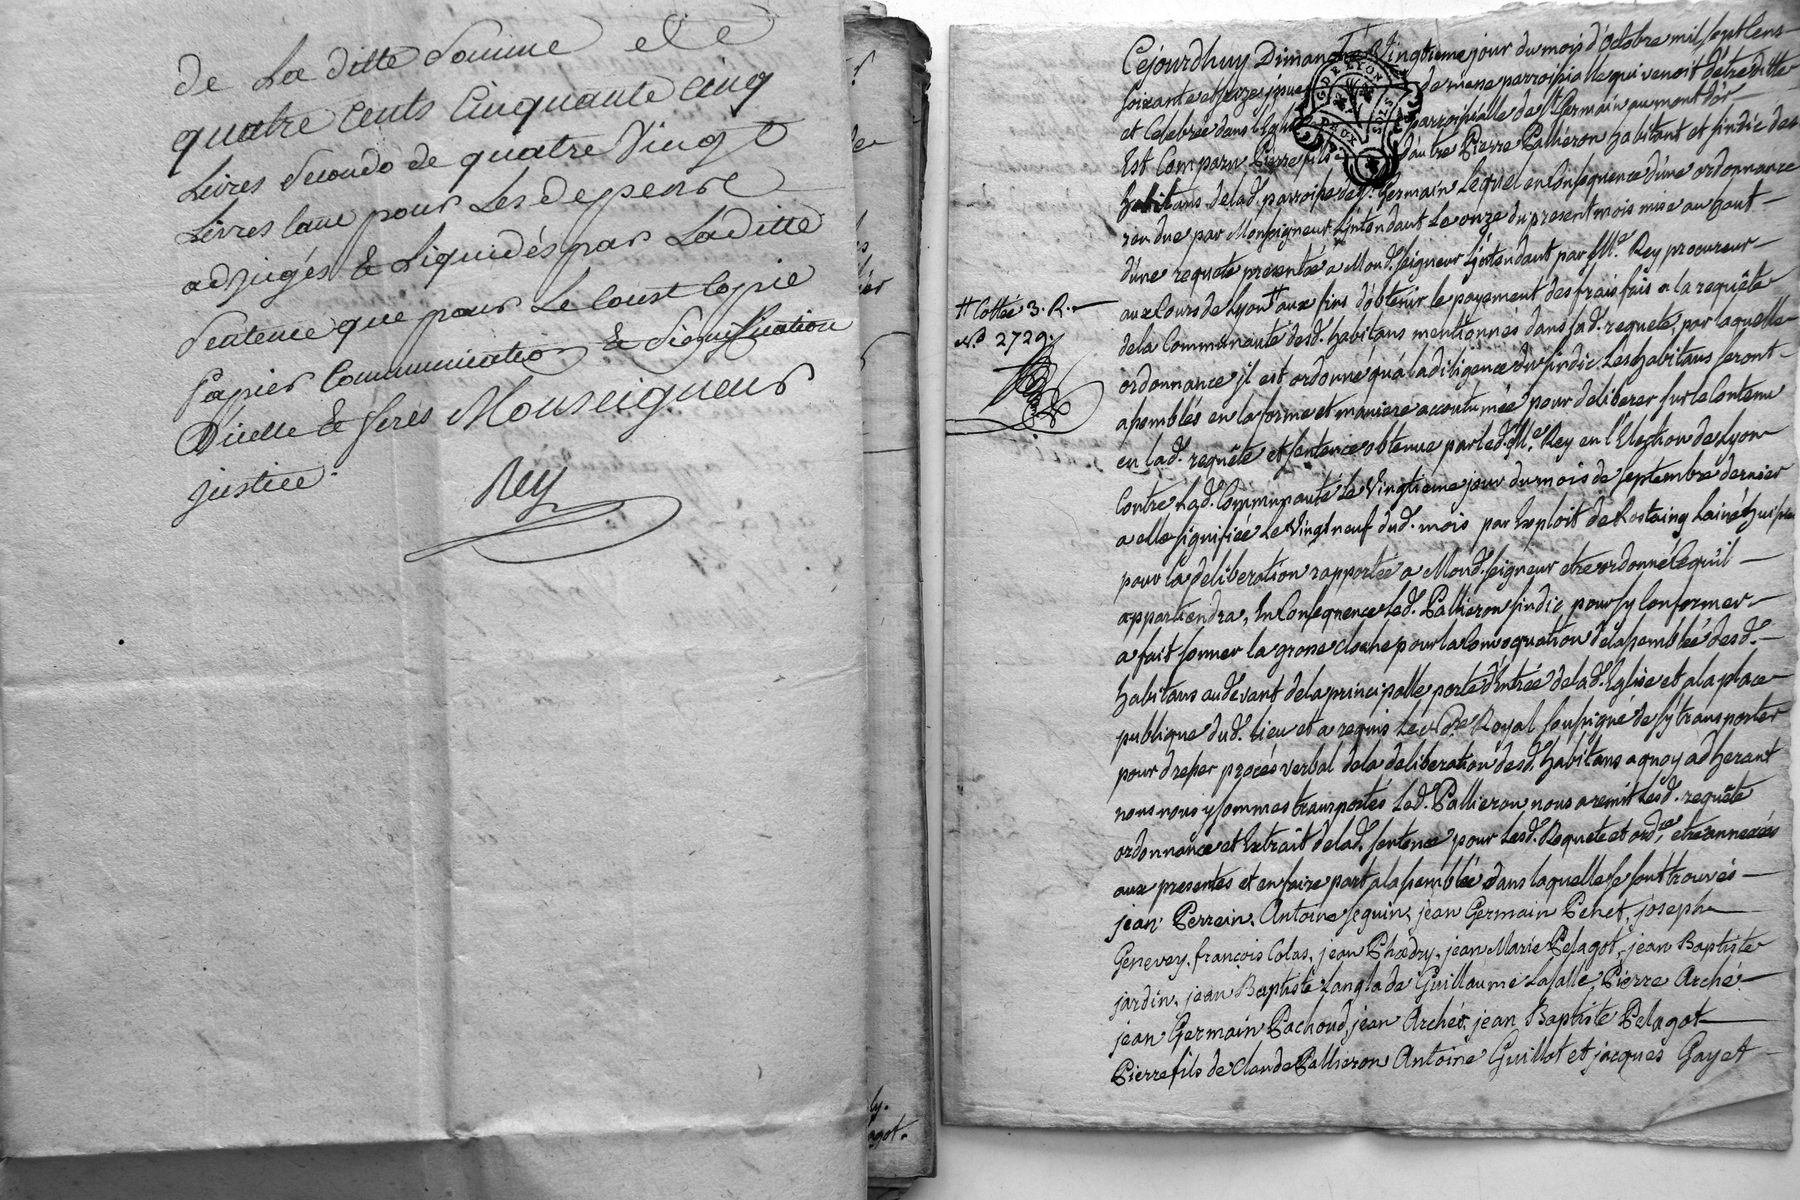 de La ditte Somme
quatre Cents Cinquante cinq
Livres Secondo de quatre Vingt
Livres pour Les depense
adjugés & Liquidés par Laditte
Sentence que pour Le Coust Copie
Papier Communication & Signiffication
Dicelle & ferés Monseigneur
justice.
Rey
Cejourdhuy Dimanche Vingtieme jour du mois d'Octobre mil sept Cens
soixante et onze issue de messe parroissialle qui venoit d'etre ditte
et Celebrée dans l'Eglise parroissialle de St. Germain au mont d'or
Est Comparu Pierre fils d'autre Pierre Pallieron habitant et sindic des
habitans delad. parroisse de St. Germain Lequel en Consequence d'une ordonnance
rendue par Monseigneur L'intendant Le onze du present mois mise au haut
d'une requete presentée a Mond. seigneur L'intendant par Me. Rey procureur
aux Cours de Lyon # aux fins d'obtenir le payement des frais fais a la requête
# Cottée 3. R.
No 2729.
dela Communauté desd. habitans mentionnés dans lad. requete, par laquelle
ordonnance il est ordonné qu'á la diligence du sindic Les habitans seront
assemblés en la forme et maniere accoutumée pour deliberer sur le Contenu
en lad. requête et sentence obtenue par led. Me. Rey en l'Election de Lyon
Contre Lad. Communauté Le Vingtieme jour du mois de septembre dernier
a elle signifiée Le Vingt neuf dud. mois par Exploit de Rostaing Lainé huissier
pour la deliberation rapportée a Mond. seigneur etre ordonné Ce quil
appartiendra, En Consequence Led. Pallieron sindic pour sy Conformer
a fait sonner la grosse cloche pour la Convoquation de l'assemblée desd.
habitans audevant dela principalle porte d'Entrée delad. Eglise et a la place
publique dud. lieu et a requis Le Royal soussigné de sy transporter
pour dresser procés verbal dela deliberation desd. habitans a quoy adherant
nous nous y sommes transportés Led. Pallieron nous a remit Lesd. requête
ordonnance et Extrait delad. sentence pour Lesd. Requete et ordce. etre annexées
aux presentes et en faire part a l'assemblée dans laquelle se sont trouvés
jean Perrein, Antoine seguin, jean Germain Penet, joseph
Genevey, françois Colas, jean Phædry, jean Marie Pelagot, jean Baptiste
jardin, jean Baptiste Langlade Guillaume Lasalle, Pierre Arché
jean Germain Pachoud, jean Archér, jean Baptiste Pelagot
Pierre fils de Claude Pallieron Antoine Guillot et jacques Gayet
G. DE LYON
DEUX SOLS